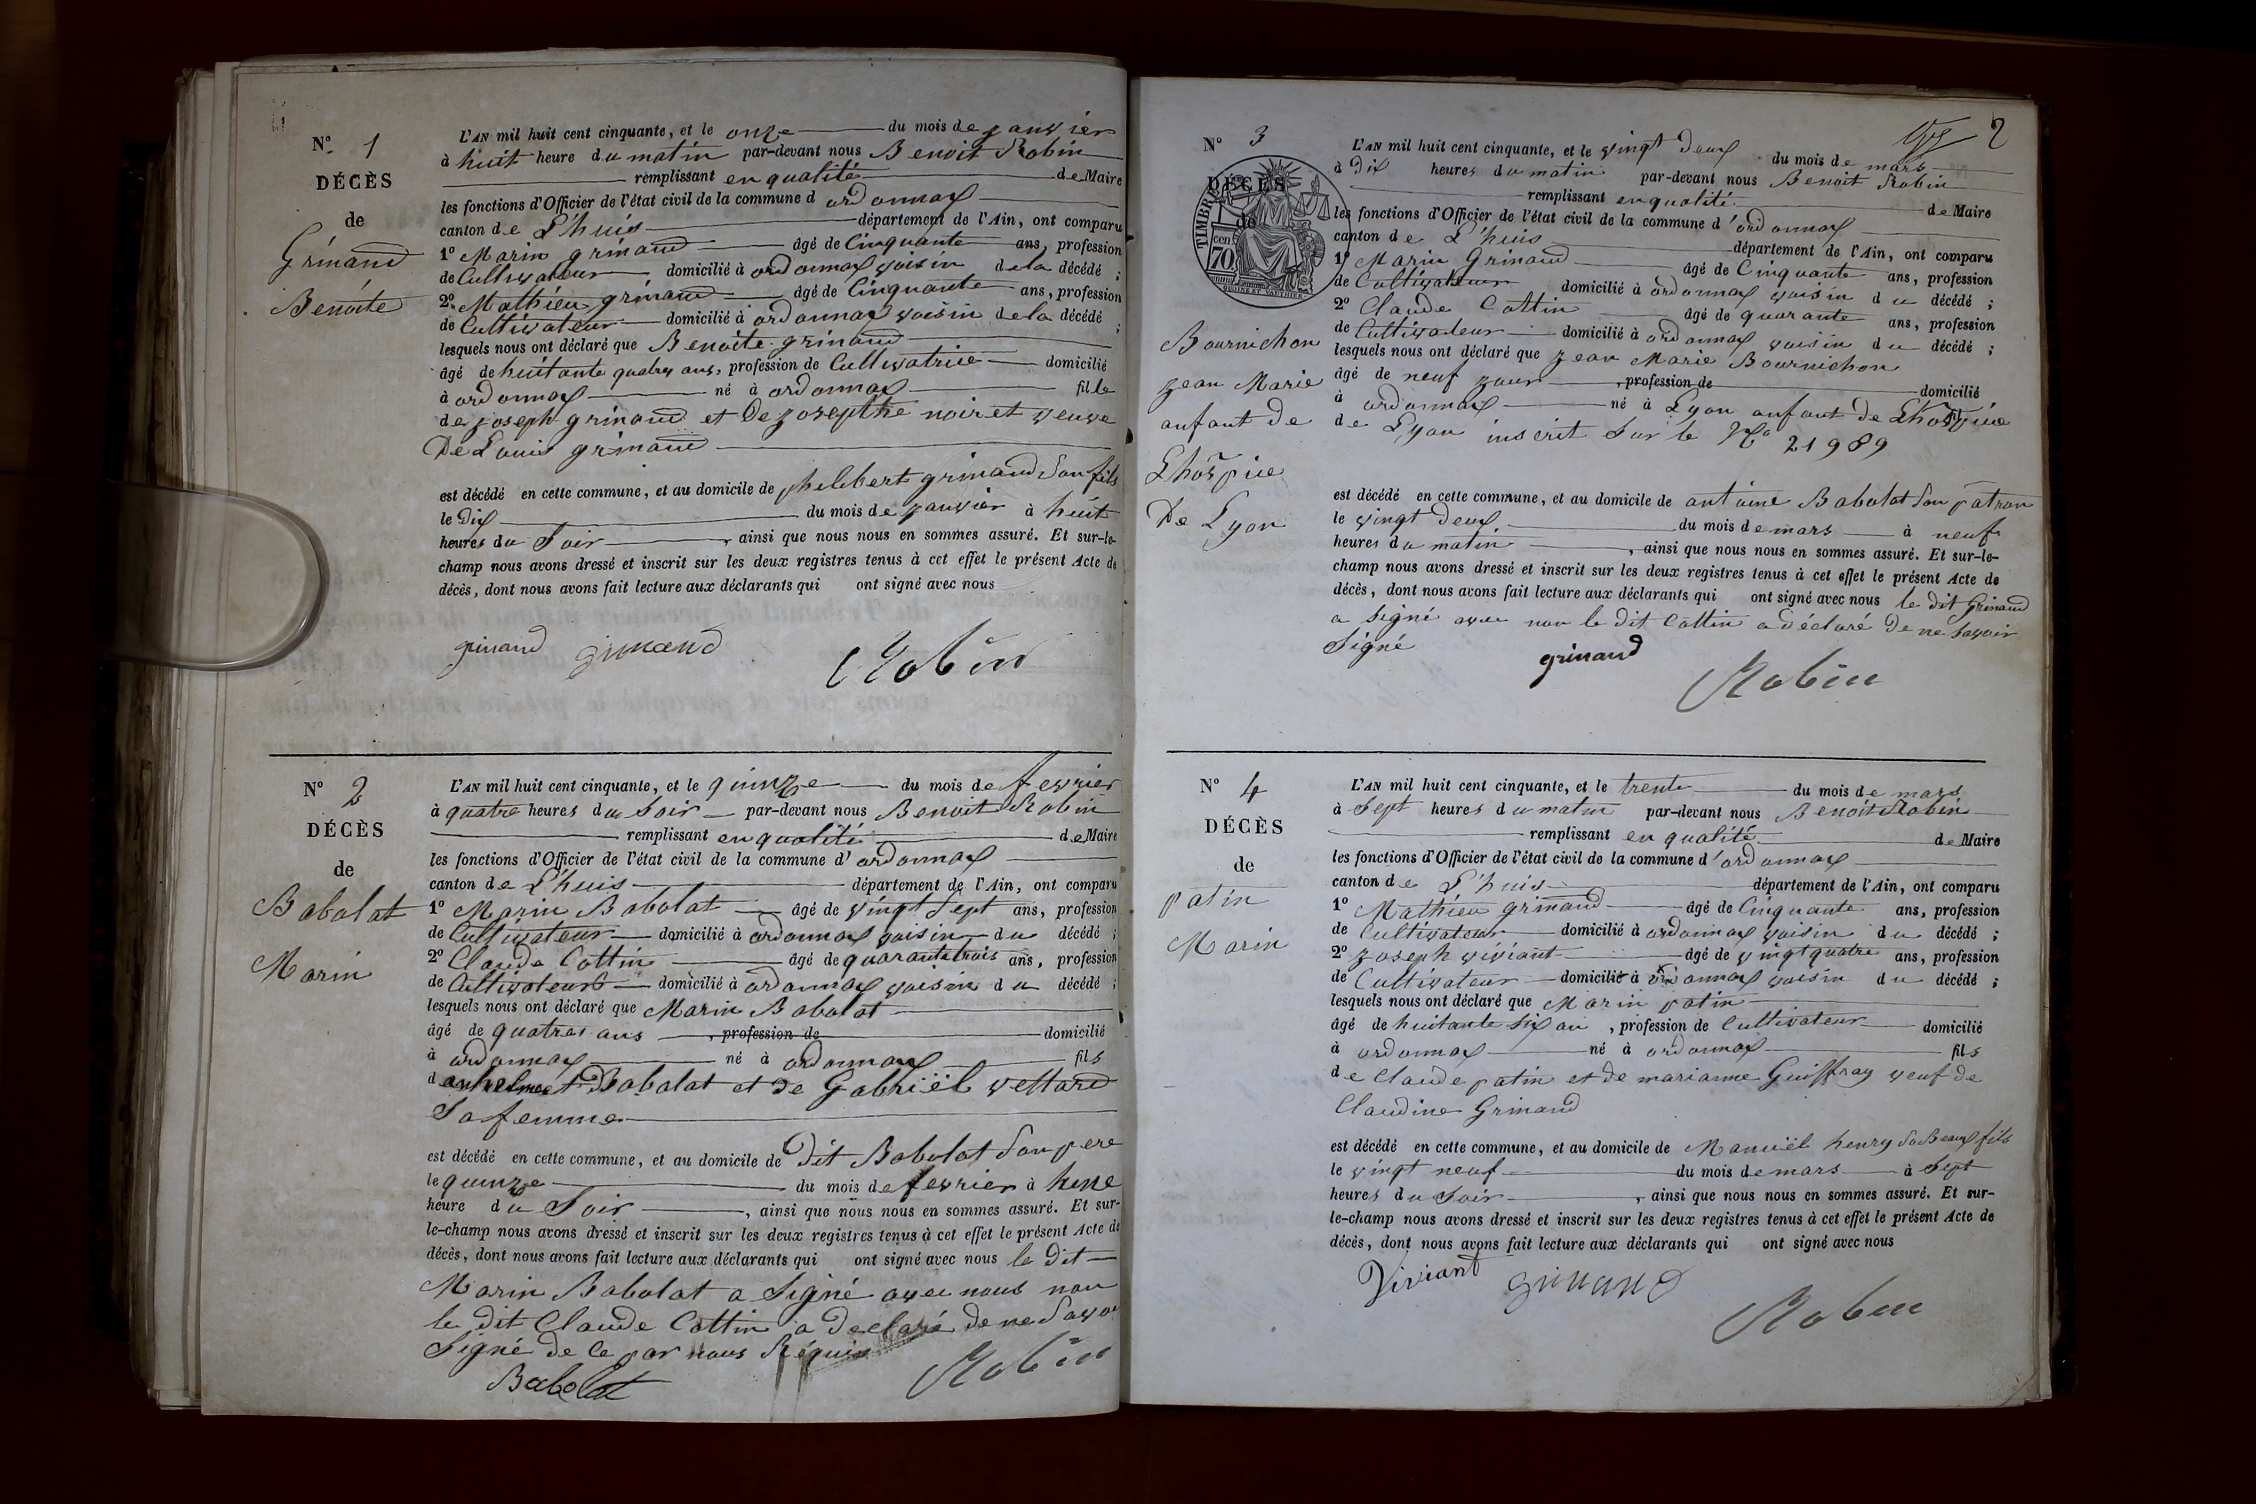 N° 1
DÉCÈS
de
Grinand
Benoite
L'AN mil huit cent cinquante, et le onze du mois de janvier
à huit heure du matin par-devant nous Benoit Robin
remplissant en qualité de Maire
les fonctions d'Officier de l'état civil de la commune d ordonnax
canton de L'huis département de l'Ain, ont comparu
1° Marin grinand âgé de Cinquante ans, profession
de Cultivateur domicilié à ordonnax voisin de la décédé ;
2° Mathieu grinand âgé de Cinquante ans, profession
de Cultivateur domicilié à ordonnax voisin de la décédé ;
lesquels nous ont déclaré que Benoite grinand
âgé de huitante quatre ans, profession de Cultivatrice domicilié
à ordonnax né à ordonnax fille
de joseph grinand et de josepthe noir et veuve
De Louis grinand
est décédé en cette commune, et au domicile de philibert grinand Son fils
le Dix du mois de janvier à huit
heures du Soir , ainsi que nous nous en sommes assuré. Et sur-le-
champ nous avons dressé et inscrit sur les deux registres tenus à cet effet le présent Acte de
décès, dont nous avons fait lecture aux déclarants qui ont signé avec nous
grinand grinand Robin
N° 2
DÉCÈS
de
Babolat
Marin
L'AN mil huit cent cinquante, et le quinze du mois de fevrier
à quatre heures du Soir par-devant nous Benoit Robin
remplissant en qualité de Maire
les fonctions d'Officier de l'état civil de la commune d' ordonnax
canton de L'huis département de l'Ain, ont comparu
1° Marin Babolat âgé de vingt Sept ans, profession
de Cultivateur domicilié à ordonnax voisin du décédé ;
2° Claude Cottin âgé de quarante trois ans, profession
de Cultivateur domicilié à ordonnax voisin du décédé ;
lesquels nous ont déclaré que Marin Babolat
âgé de quatres ans , profession de domicilié
à ordonnax né à ordonnax fils
d'anhelmet Babolat et de Gabriël vettard
Sa femme
est décédé en cette commune, et au domicile de Dit Babolat Son pere
le quinze du mois de fevrier à hune
heure du Soir , ainsi que nous nous en sommes assuré. Et sur-
le-champ nous avons dressé et inscrit sur les deux registres tenus à cet effet le présent Acte de
décès, dont nous avons fait lecture aux déclarants qui ont signé avec nous le dit
Marin Babolat a Signé avec nous non
le dit Claude Cottin a declaré de ne Savoi
Signé de ce par nous Réquis
Babolat Robin
2
N° 3
DÉCÈS
de
TIMBRE
70 cen
Bournichon
jean Marie
anfant de
Lhospice
De Lyon
L'AN mil huit cent cinquante, et le vingt deux du mois de mars
à Dix heures du matin par-devant nous Benoit Robin
remplissant en qualité de Maire
les fonctions d'Officier de l'état civil de la commune d'ordonnax
canton de L'huis département de l'Ain, ont comparu
1° Marin Grinand âgé de Cinquante ans, profession
de Cultivateur domicilié à ordonnax voisin du décédé ;
2° Claude Cottin âgé de quarante ans, profession
de Cultivateur domicilié à ordonnax voisin du décédé ;
lesquels nous ont déclaré que jean Marie Bournichon
âgé de neuf jour , profession de domicilié
à ordonnax né à Lyon anfant de Lhospice
de Lyon inscrit Sur le N° 21989
est décédé en cette commune, et au domicile de antoine Babolat Son patron
le vingt deux du mois de mars à neuf
heures du matin , ainsi que nous nous en sommes assuré. Et sur-le-
champ nous avons dressé et inscrit sur les deux registres tenus à cet effet le présent Acte de
décès, dont nous avons fait lecture aux déclarants qui ont signé avec nous le dit Grinand
a Signé avec non le dit Cottin a déclaré de ne Savoir
Signé
grinand Robin
N° 4
DÉCÈS
de
patin
Marin
L'AN mil huit cent cinquante, et le trente du mois de mars
à Sept heures du matin par-devant nous Benoit Robin
remplissant en qualité de Maire
les fonctions d'Officier de l'état civil de la commune d'ordonnax
canton de L'huis département de l'Ain, ont comparu
1° Mathieu grinand âgé de Cinquante ans, profession
de Cultivateur domicilié à ordonnax voisin du décédé ;
2° joseph viviant âgé de vingt quatre ans, profession
de Cultivateur domicilié à ordonnax voisin du décédé ;
lesquels nous ont déclaré que Marin patin
âgé de huitante Six an , profession de Cultivateur domicilié
à ordonnax né à ordonnax fils
de Claude patin et de marianne Guiffray veuf de
Claudine Grinand
est décédé en cette commune, et au domicile de Manuël henry So Beaux fils
le vingt neuf du mois de mars à Sept
heures du Soir , ainsi que nous nous en sommes assuré. Et sur-
le-champ nous avons dressé et inscrit sur les deux registres tenus à cet effet le présent Acte de
décès, dont nous avons fait lecture aux déclarants qui ont signé avec nous
Viviant grinand Robin